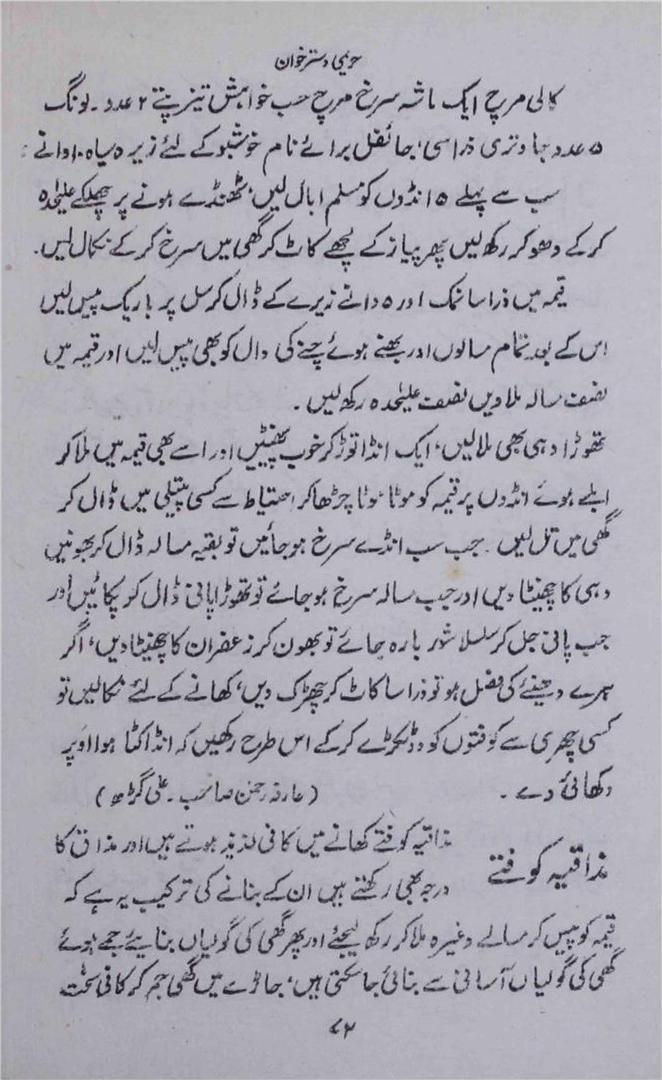 حریمی دسترخوان
کالی مرچ ایک ماشہ سرخ مرچ حسب خواہش تیز پتے ۲ عدد۔ لونگ
۵ عدد جاوتری ذراسی، جائفل برائے نام خوشبو کے لئے زیرہ سیاہ ۱۰ دانے :
سب سے پہلے ۵ انڈوں کو مسلم ابال لیں، ٹھنڈے ہونے پر چھلکے علیٰحدہ
کر کے دھو کر رکھ لیں پھر پیاز کے لچھے کاٹ کر گھی میں سرخ کر کے نکال لیں۔
قیمہ میں ذرا سا نمک اور ۵ دانے زیرے کے ڈال کر سل پر باریک پیس لیں
اس کے بعد تمام مسالوں اور بھنے ہوئے چنے کی دال کو بھی پیس لیں اور قیمہ میں
نصف مسالہ ملا دیں نصف علیٰحدہ رکھ لیں۔
تھوڑا دہی بھی ملا لیں، ایک انڈا توڑ کر خوب پھینٹیں اور اسے بھی قیمہ میں ملا کر
ابلے ہوئے انڈوں پر قیمہ کو موٹا موٹا چڑھا کر احتیاط سے کسی پتیلی میں ڈال کر
گھی میں تل لیں۔ جب سب انڈے سرخ ہو جائیں تو بقیہ مسالہ ڈال کر بھونیں
دہی کا چھینٹا دیں اور جب مسالہ سرخ ہو جائے تو تھوڑا پانی ڈال کر پکائیں اور
جب پانی جل کر مسالا شوربا رہ جائے تو بھون کر زعفران کا چھینٹا دیں، اگر
ہرے دھنئے کی فصل ہو تو ذرا سا کاٹ کر چھڑک دیں، کھانے کے لئے نکالیں تو
کسی چھری سے کوفتوں کو دو ٹکڑے کر کے اس طرح رکھیں کہ انڈا کٹا ہوا اوپر
دکھائی دے۔ (عارفہ رحمٰن صاحبہ۔ علی گڑھ)
مذاقیہ کوفتے مذاقیہ کوفتے کھانے میں کافی لذیذ ہوتے ہیں اور مذاق کا
درجہ بھی رکھتے ہیں ان کے بنانے کی ترکیب یہ ہے کہ
قیمہ کو پیس کر مسالے وغیرہ ملا کر رکھ لیجئے اور پھر گھی کی گولیاں بنایئے جمے ہوئے
گھی کی گولیاں آسانی سے بنائی جا سکتی ہیں، جاڑے میں گھی جم کر کافی سخت
۷۲